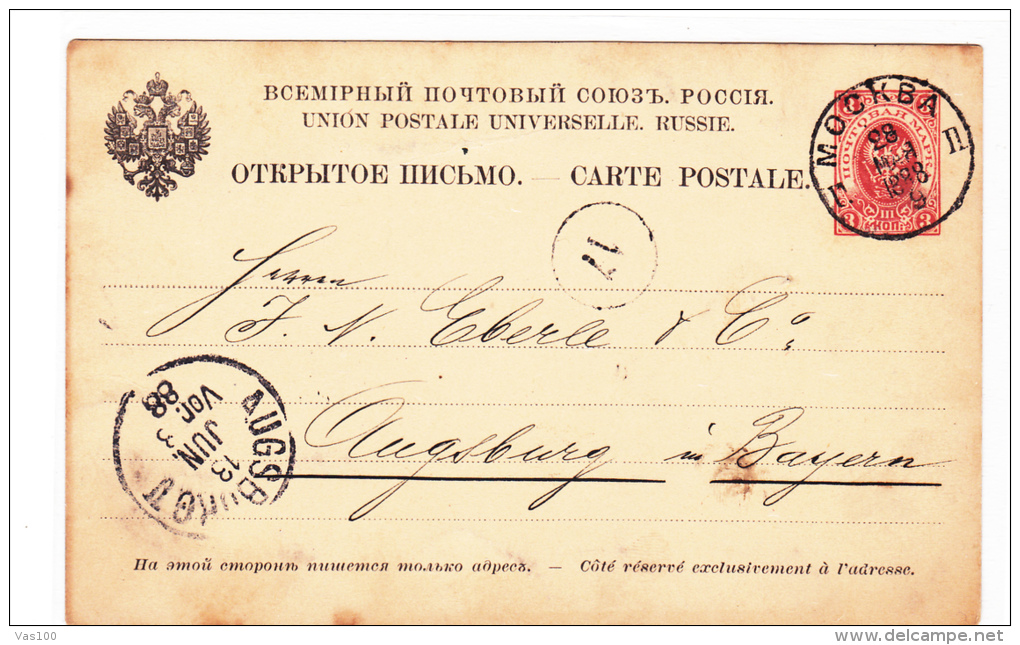 ВСЕМІРНЫЙ ПОЧТОВЫЙ СОЮЗЪ. РОССІЯ.
UNION POSTALE UNIVERSELLE. RUSSIE.
ОТКРЫТОЕ ПИСЬМО. — CARTE POSTALE.
МОСКВА
28
1888
ПОЧТОВАЯ МАРКА
3 III 3
КОП.
17
Herren
J. N. Eberle & Co
Augsburg in Bayern
AUGSBURG
13
JUN
Vor.
88
На этой сторонѣ пишется только адресъ. — Côté réservé exclusivement à l'adresse.
Vas100
www.delcampe.net